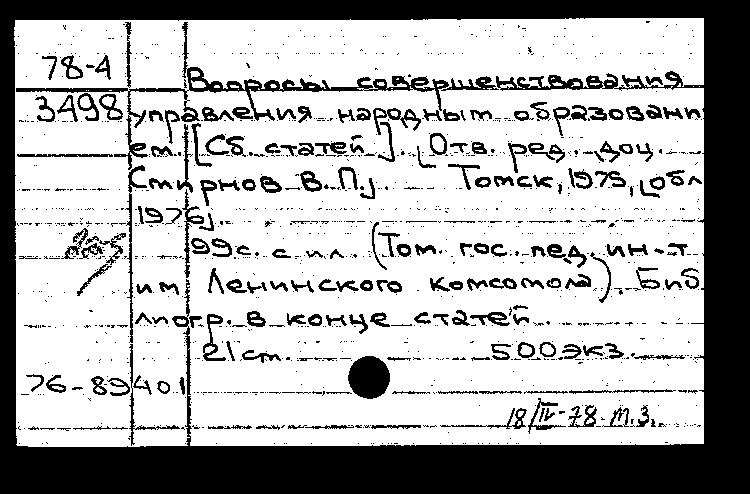 78-4
Вопросы совершенствования
3498 управления народным образовани
ем. [Сб. статей]. [Отв. ред. доц.
Смирнов В.П.]. Томск, 1975, [обл
1976].
99с. с ил. (Том. гос. пед. ин-т
им Ленинского комсомола). Биб
лиогр. в конце статей.
21 ст. 500 экз.
76-89401
18/IV-78. М.З.